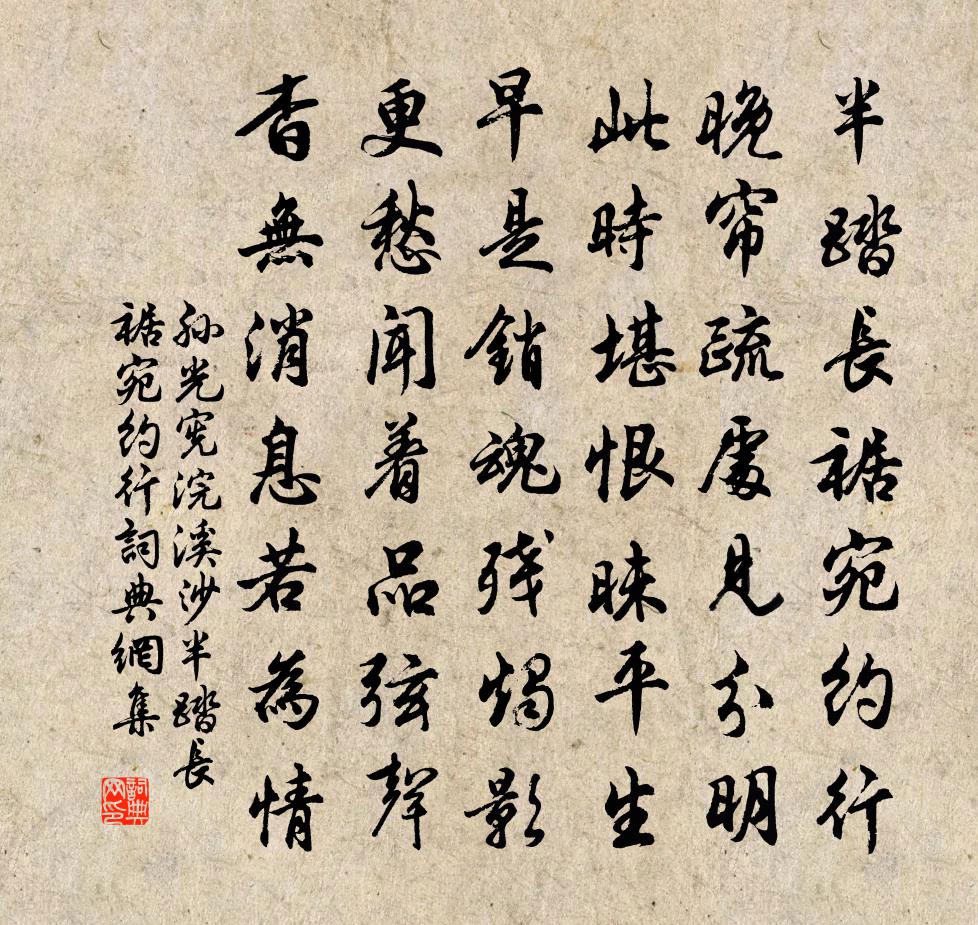 半踏長裾宛約行
晚帘疏處見分明
此時堪恨昧平生
早是銷魂殘燭影
更愁聞着品弦聲
杳無消息若為情
孙光宪浣溪沙半踏長
裾宛約行詞典網集
詞典
网印